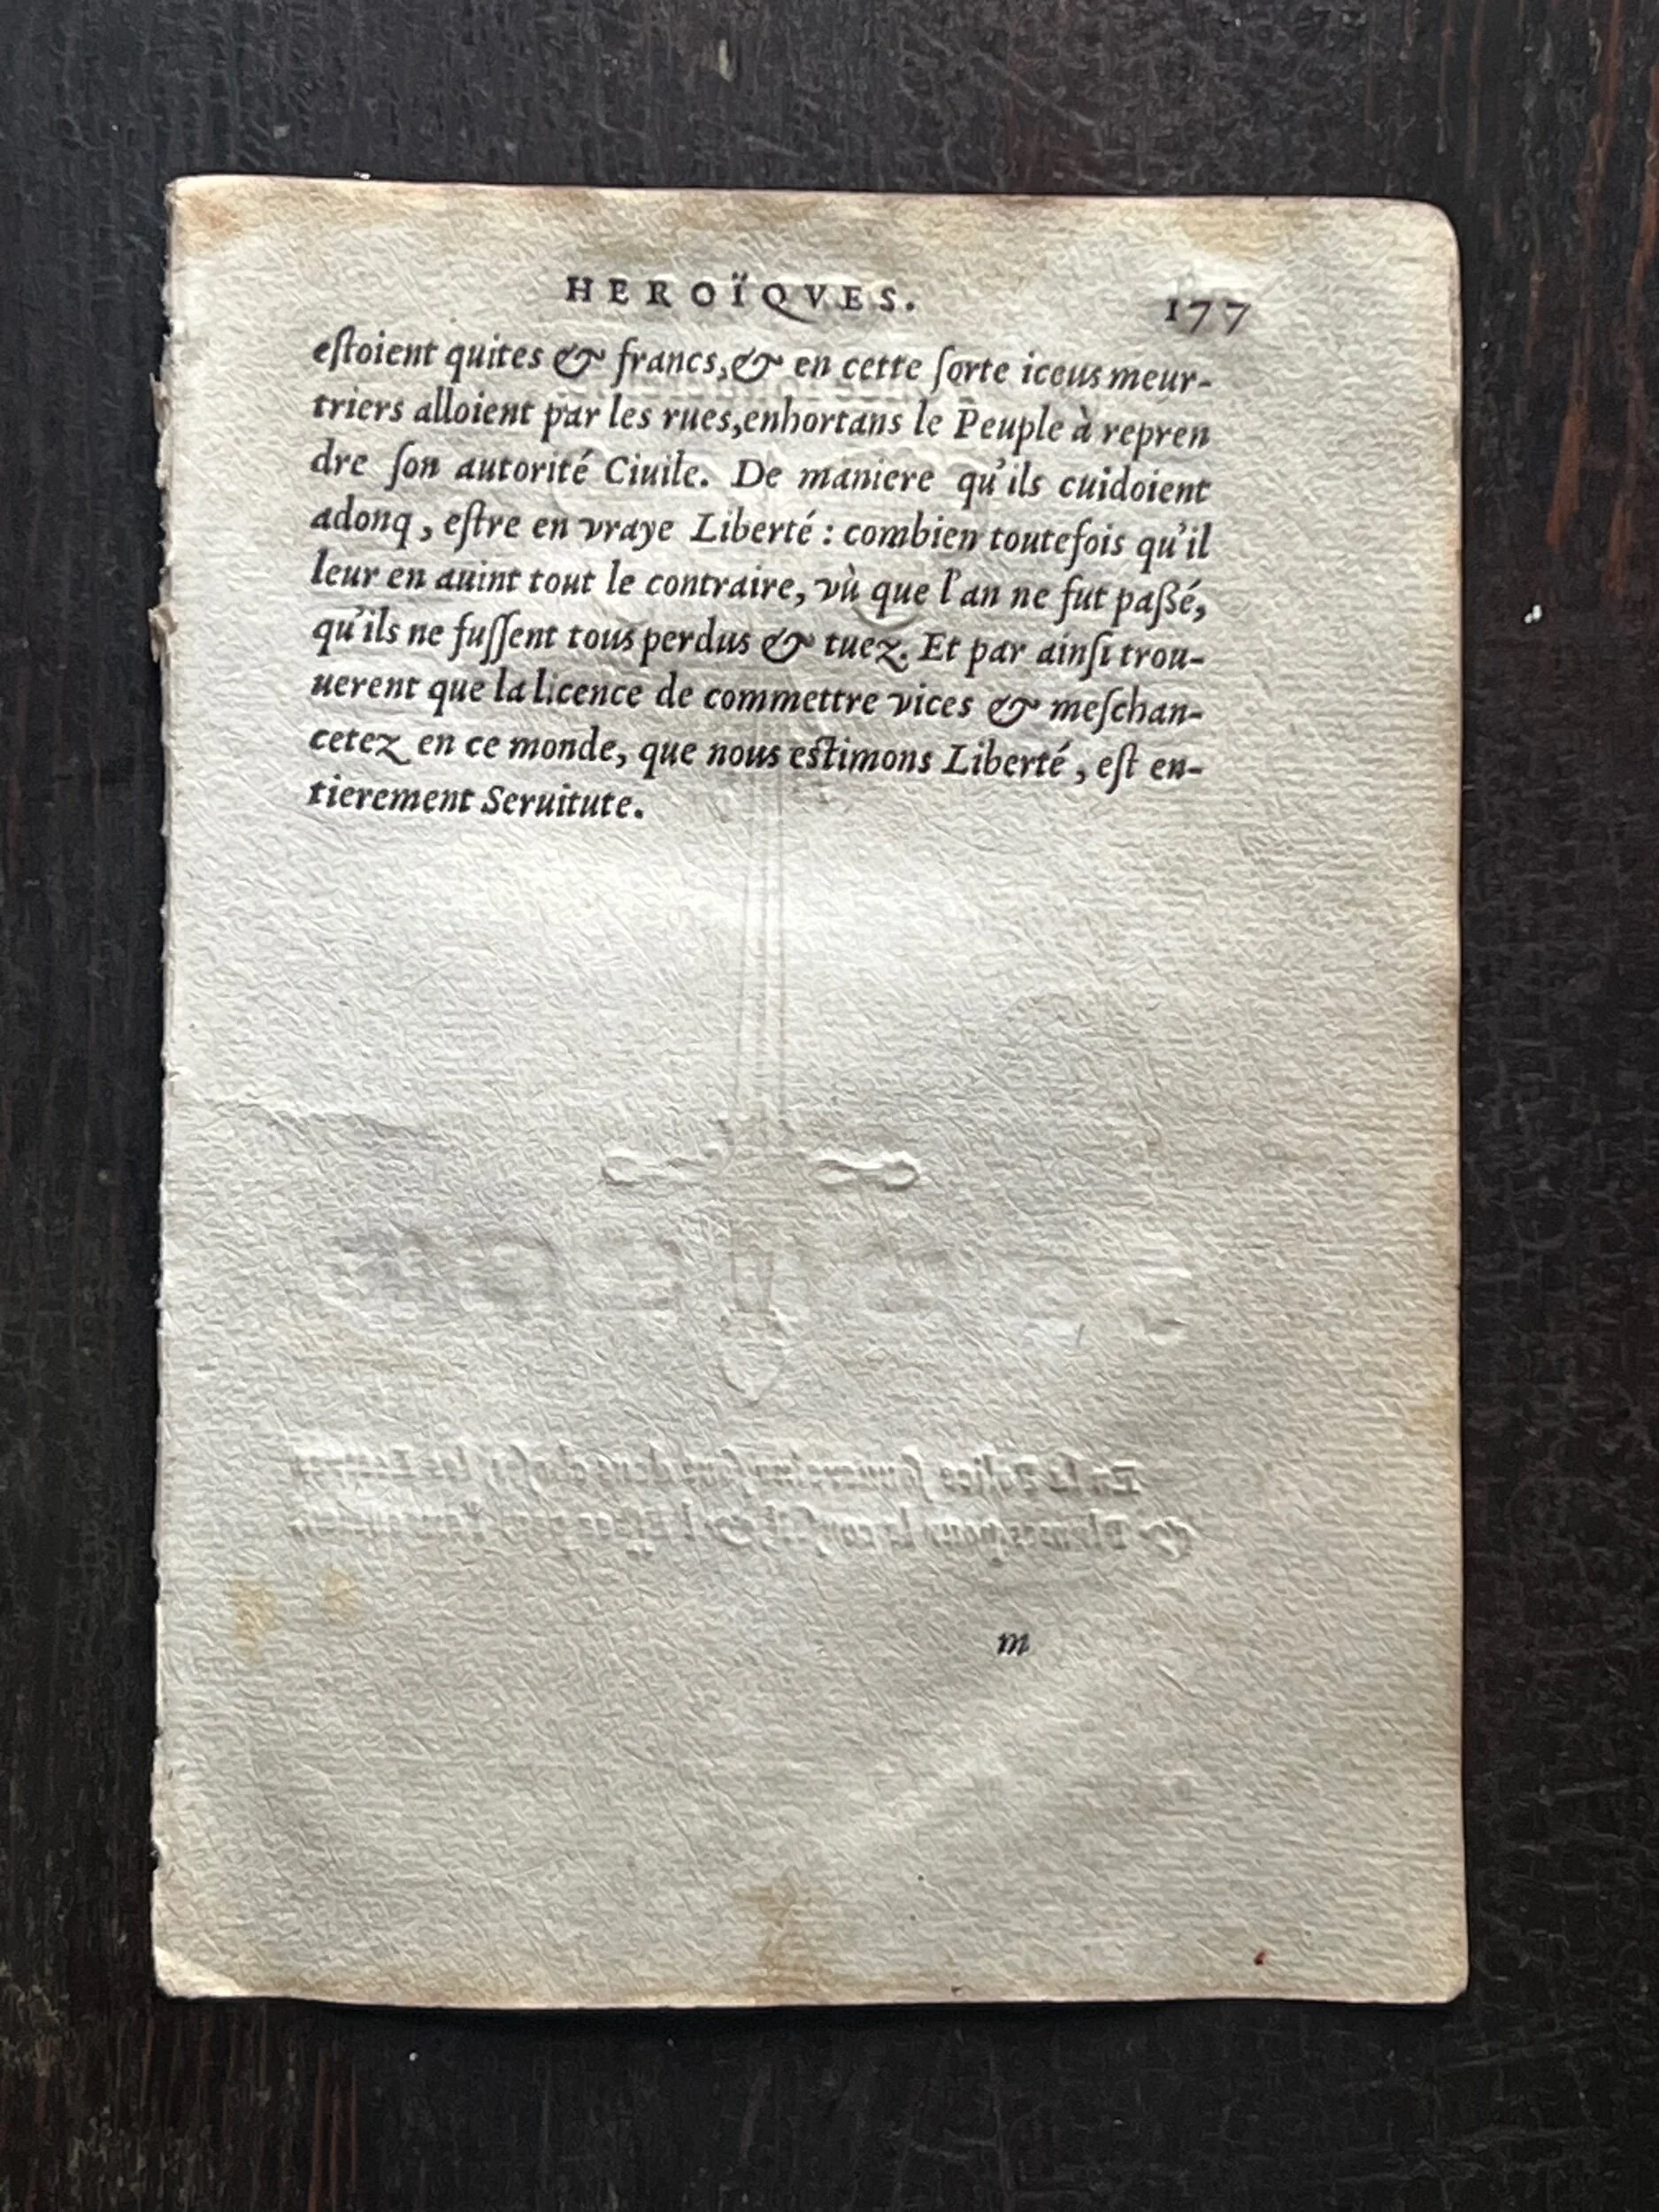 HEROÏQVES. 177
eſtoient quites & francs, & en cette ſorte iceus meur-
triers alloient par les rues, enhortans le Peuple à repren
dre ſon autorité Ciuile. De maniere qu'ils cuidoient
adonq, eſtre en vraye Liberté : combien toutefois qu'il
leur en auint tout le contraire, vù que l'an ne fut paſsé,
qu'ils ne fuſſent tous perdus & tuez. Et par ainſi trou-
uerent que la licence de commettre vices & meſchan-
cetez en ce monde, que nous eſtimons Liberté, eſt en-
tierement Seruitute.
m